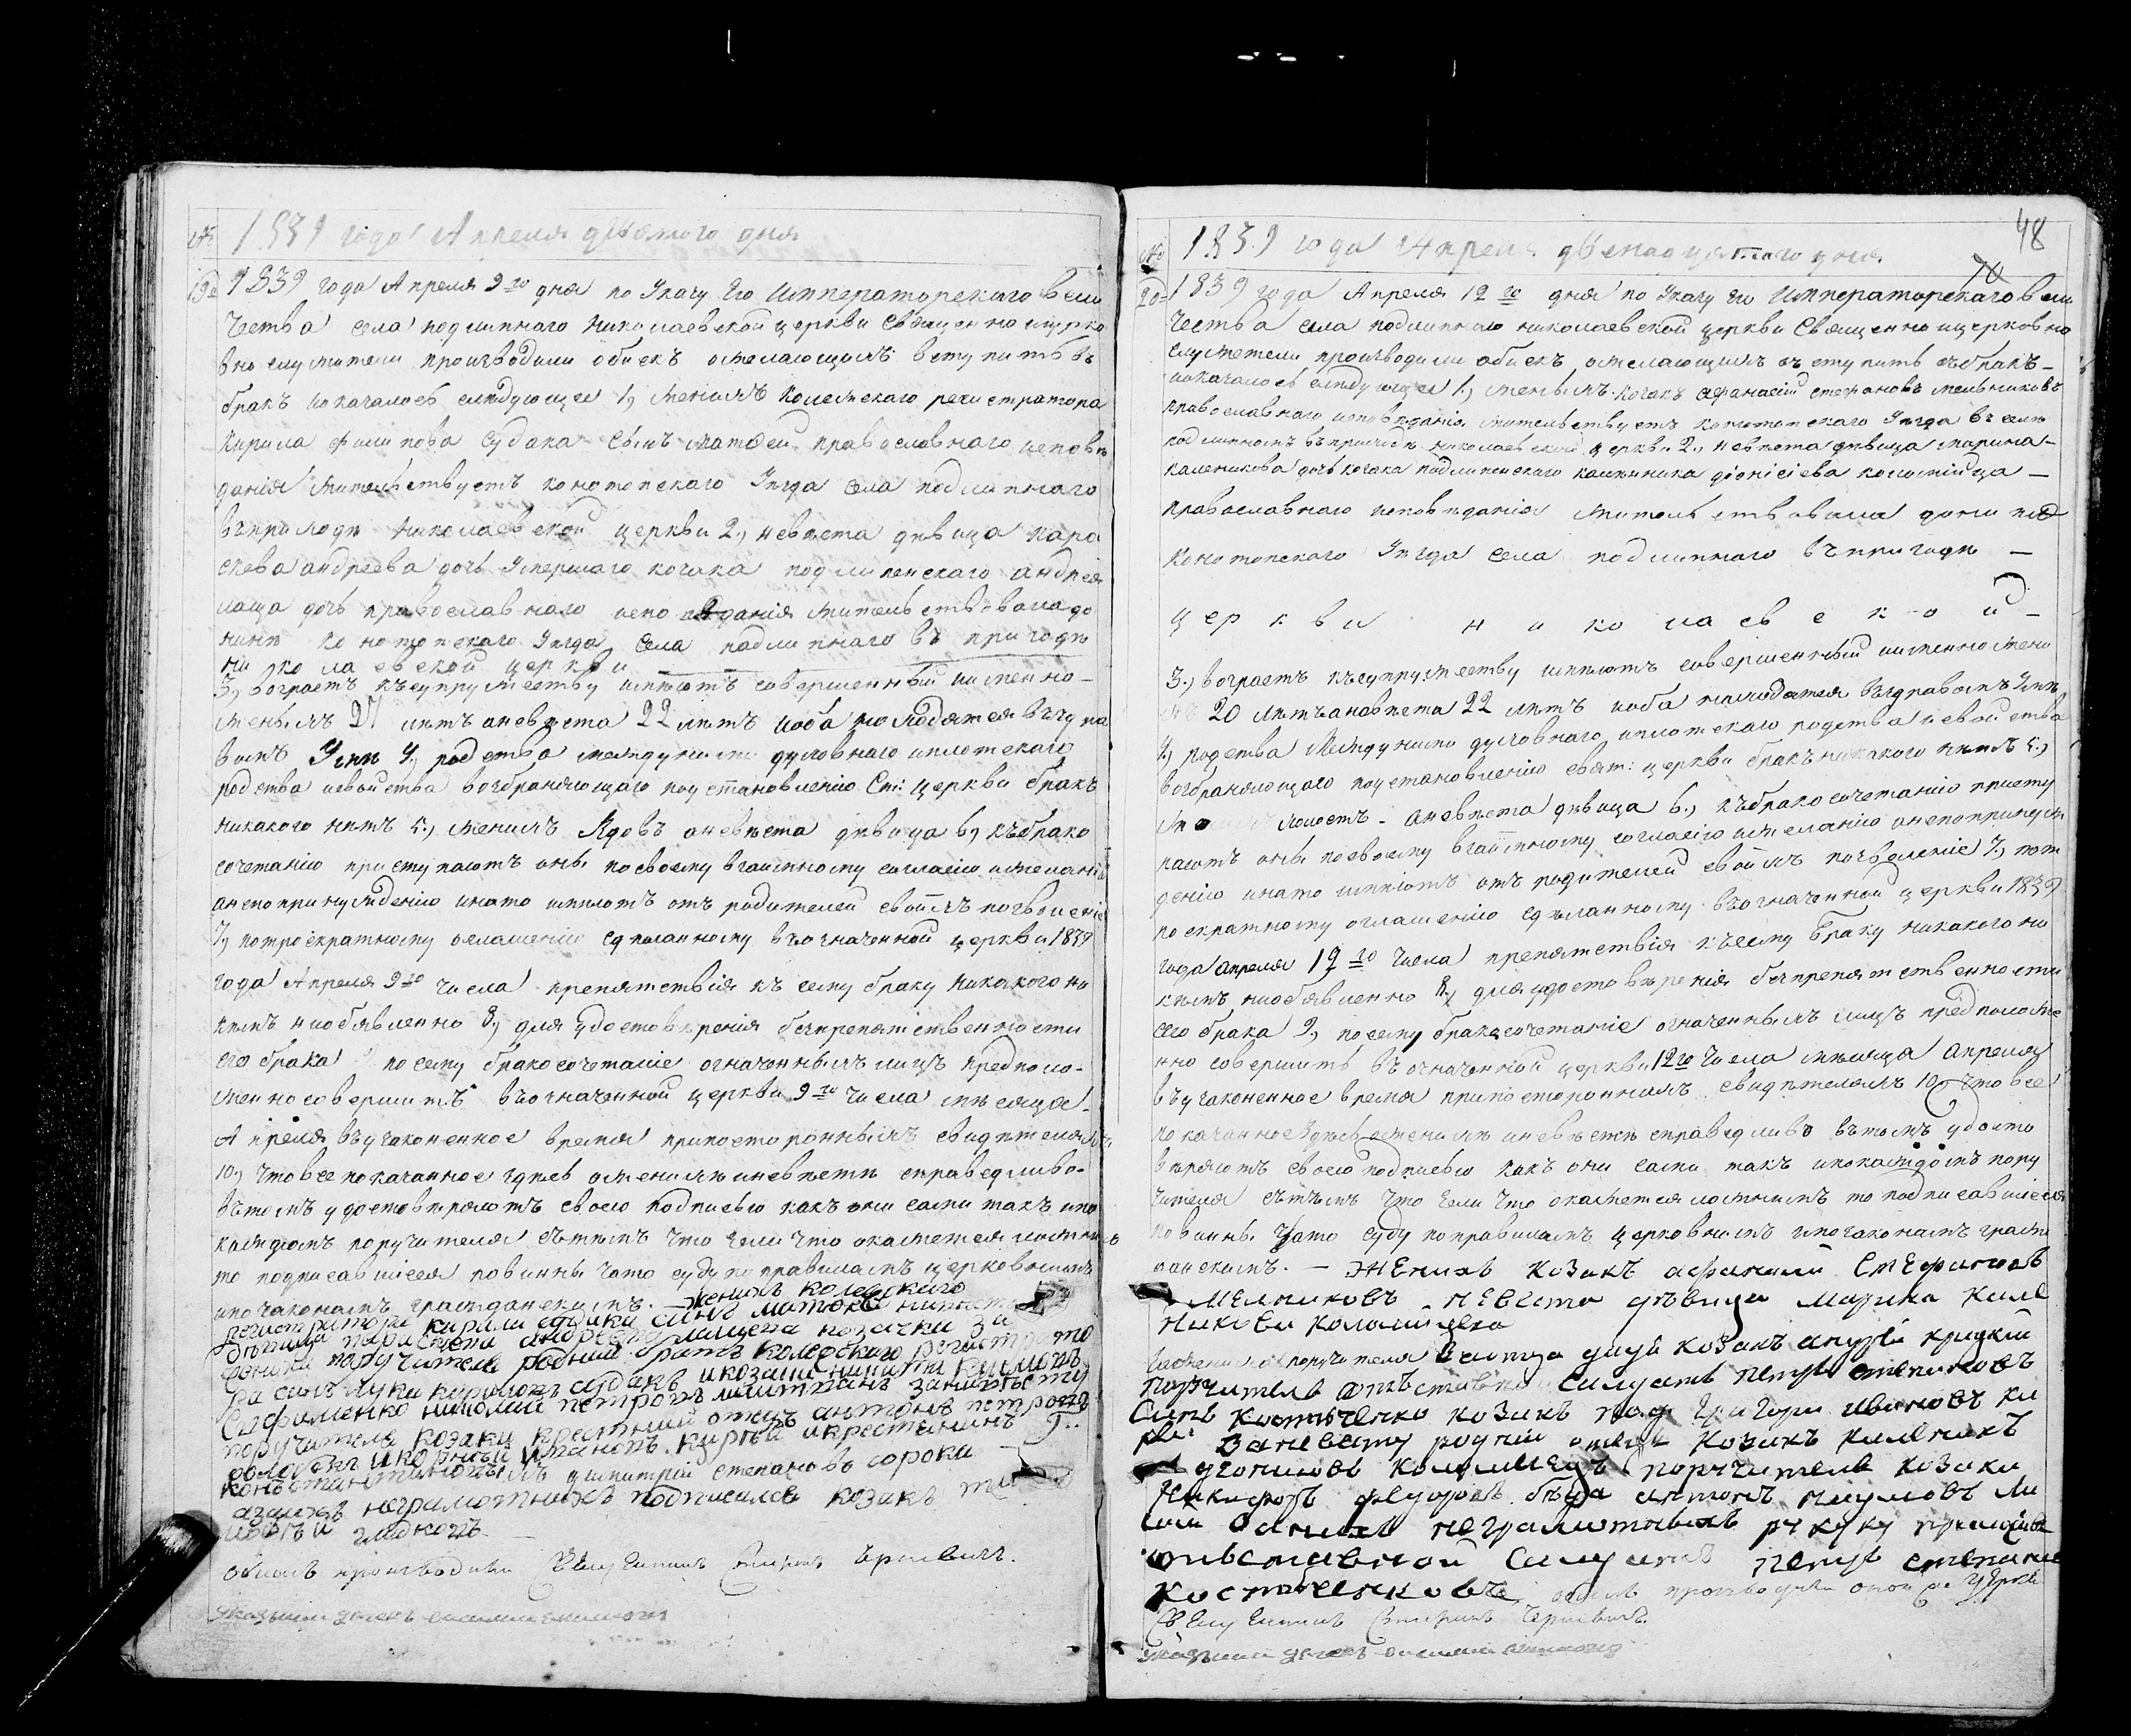 №
1839 года Апреля девятого дня
19
1839 года Апреля 9го дня по Указу Его Императорскаго Вели
чества села подлипнаго николаевской церкви Священно и церко
вно служители производили обыск о желающихъ вступить въ
бракъ и оказалось следующее 1, женихъ колежскаго регистратора
кирила филипова Судака сынъ матфей православнаго исповѣ
данія жительствуетъ конотопскаго уѣзда села подлипнаго
въ приходѣ николаевской церкви 2, невѣста дѣвица пара
скева андреева дочь умершаго козака подлипенскаго андрея
лаща дочь православнаго исповѣданія жительствовала до
нинѣ конотопскаго уѣзда села подлипнаго въ приходѣ
николаевской церкви
3, возрастъ къ супружеству имѣютъ совершенный и именно
женихъ 27 лѣтъ а невѣста 22 лѣтъ и оба находятся въ здра
вомъ умѣ 4, родства между ними духовнаго и плотскаго
родства и свойства возбраняющаго по установленію Ст: церкви бракъ
никакого нѣтъ 5, женихъ вдовъ а невѣста дѣвица 6, къ брако
сочетанію приступаютъ они по своему взаимному согласію и желанію
а не по принужденію и на то имѣютъ отъ родителей своихъ позволеніе
7, по троекратному оглашенію сдѣланному въ означенной церкви 1839
года Апреля 9го числа препятствія къ сему браку никакого ни
кѣмъ не объявленно 8, для удостовѣренія безпрепятственности
сего брака по сему бракосочетаніе означенныхъ лицъ предполо-
женно совершить въ означенной церкви 9го числа мѣсяца
Апреля въ узаконенное время при постороннихъ свидѣтеляхъ
10, что все показанное здѣсь о женихѣ и невѣстѣ справедливо
въ томъ удостовѣряютъ своею подписью какъ они сами такъ и по
каждомъ поручителя съ тѣмъ что если что окажется ложнымъ
то подписавшіеся повинны за то суду по правиламъ церковнымъ
и по законамъ гражданскимъ. женихъ колежского
регистратора кирила судака синъ матфей
дѣвица параскева андреева лащева козачки за
жениха поручители родний братъ колежского регистрато
ра синъ лука кириловъ судакъ и козаки никита
Ефименко николай петровъ за невѣсту
поручители козаки крестний отецъ антонъ петровъ
и корнѣй степановъ и крестянинъ
константиновъ димитрій степановъ сорока
а за нихъ неграмотнихъ подписалса козакъ

обискъ производили

48
№
1839 года Апреля двенадцятаго дня
20
1839 года Апреля 12го дня по Указу Его Императорскаго Вели
чества села подлипнаго николаевской церкви Священно и церковно
служители производили обыскъ о желающихъ вступить въ бракъ
и оказалось слѣдующее 1, женихъ козакъ афанасій стефановъ мельниковъ
православнаго исповѣданія жительствуетъ конотопскаго уѣзда въ селѣ
подлипномъ въ приходѣ николаевской церкви 2, невѣста дѣвица марина
каленикова дочь козака подлипенскаго каленика діонисіева коломійца
православнаго исповѣданія жительствовала до нинѣ
конотопскаго уѣзда села подлипнаго въ приходѣ
церкви николаевской
3, возрастъ къ супружеству имѣютъ совершенный и именно жени
хъ 20 лѣтъ а невѣста 22 лѣтъ и оба находятся въ здравомъ умѣ
4, родства между ними духовнаго и плотскаго родства и свойства
возбраняющаго по установленію свят: церкви бракъ никакого нѣтъ 5,
женихъ холостъ а невѣста дѣвица 6, къ бракосочетанію присту
паютъ они по своему взаимному согласію и желанію а не по принуж
денію и на то имѣютъ отъ родителей своихъ позволеніе 7, по тро
екратному оглашенію сдѣланному въ означенной церкви 1839
года апреля 12го числа препятствія къ сему браку никакого ни
кѣмъ не объявленно 8, для удостовѣренія безпрепятственности
сего брака 9, по сему бракосочетаніе означенныхъ лицъ предположе
нно совершить въ означенной церкви 12го числа мѣсяца апреля
въ узаконенное время при постороннихъ свидѣтеляхъ 10, что все
показанное здѣсь о женихѣ и невѣстѣ справедливо въ томъ удосто
вѣряютъ своею подписью какъ они сами такъ и по каждомъ пору
чителя съ тѣмъ что если что окажется ложнымъ то подписавшіеся
повинны за то суду по правиламъ церковнымъ и по законамъ граж
данскимъ. — женихъ козакъ афанасий Стефановъ
Мельниковъ невеста дѣвица марина Кале
никова коломийцева
поручителя дядя козакъ
поручитель отъставной Салдатъ петръ степановъ
Синъ костюченко козакъ Григори ивановъ
за невесту родний отецъ козакъ каленикъ
дионисовъ коломиецъ поручители козаки
Никифоръ федоровъ антонъ наумовъ
за нихъ неграмотныхъ руку приложилъ
отъставной Салдатъ петръ степановъ
Костюченковъ обискъ производили